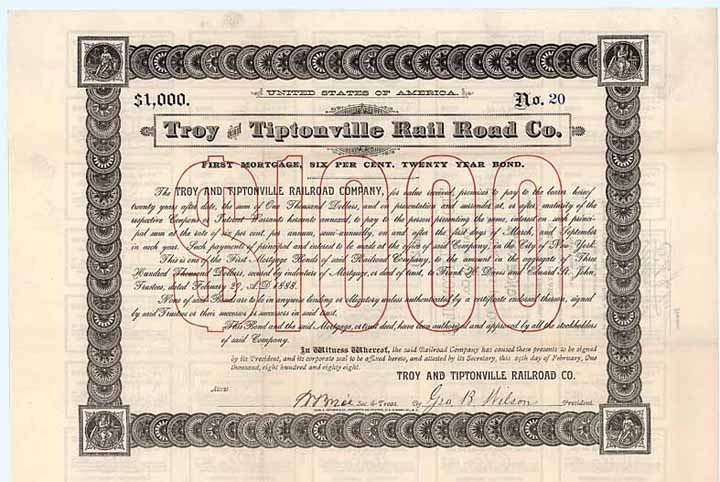 UNITED STATES OF AMERICA.
$1,000.
No. 20
Troy and Tiptonville Rail Road Co.
FIRST MORTGAGE, SIX PER CENT. TWENTY YEAR BOND.
$1000
The TROY AND TIPTONVILLE RAILROAD COMPANY, for value received, promises to pay to the bearer hereof
twenty years after date, the sum of One Thousand Dollars, and on presentation and surrender at, or after maturity of the
respective Coupons or Interest Warrants hereunto annexed, to pay to the person presenting the same, interest on such princi-
pal sum at the rate of six per cent. per annum, semi-annually, on and after the first days of March, and September
in each year. Such payments of principal and interest to be made at the office of said Company, in the City of New York.
This is one of the First Mortgage Bonds of said Railroad Company, to the amount in the aggregate of Three
Hundred Thousand Dollars, secured by indenture of Mortgage, or deed of trust, to Frank W. and Edward St. John,
Trustees, dated February 29, A.D. 1888.
None of said Bonds are to be in anywise binding or obligatory unless authenticated by a certificate endorsed thereon, signed
by said Trustees or their successor or successors in said trust.
This Bond and the said Mortgage, or trust deed, have been authorized and approved by all the stockholders
of said Company.
In Witness Whereof, the said Railroad Company has caused these presents to be signed
by its President, and its corporate seal to be affixed hereto, and attested by its Secretary, this 29th day of February, One
thousand, eight hundred and eighty eight.
TROY AND TIPTONVILLE RAILROAD CO.
Attest
Sec. & Treas. By Geo B. Wilson President.